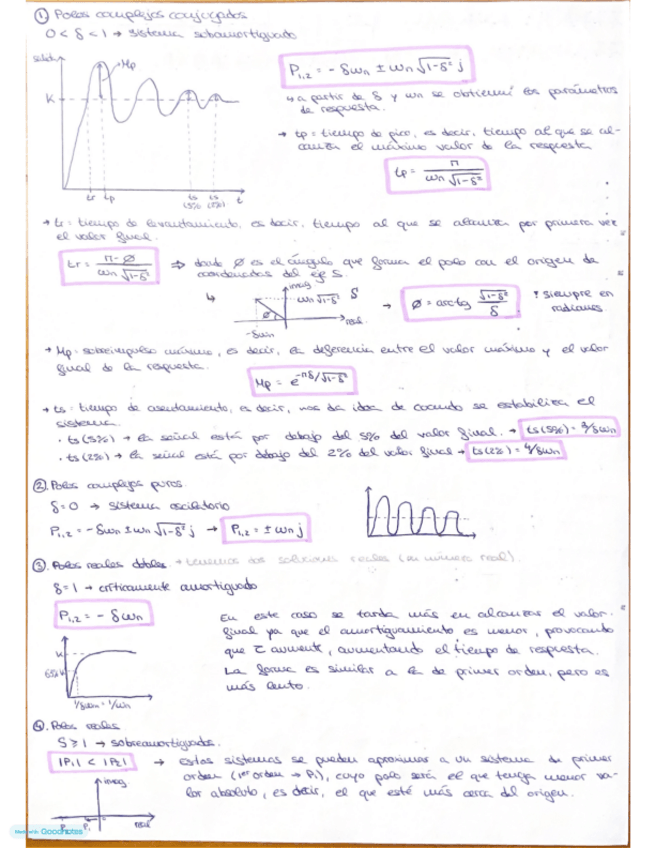 ① Polos complejos conjugados
0 < δ < 1 → sistema subamortiguado
salida
Mp
K
tr tp ts (5%) ts (2%) t
P1,2 = - δωn ± ωn √1-δ² j
↳ a partir de δ y ωn se obtienen los parámetros
de respuesta.
→ tp = tiempo de pico, es decir, tiempo al que se al-
canza el máximo valor de la respuesta
tp = π / ωn √1-δ²
→ tr = tiempo de levantamiento, es decir, tiempo al que se alcanza por primera vez
el valor final.
tr = π - Ø / ωn √1-δ² ⇒ donde Ø es el ángulo que forma el polo con el origen de
coordenadas del eje S.
↳ imag ωn √1-δ² δ Ø real -δωn → Ø = arctg √1-δ² / δ siempre en
radianes
→ Mp = sobreimpulso máximo, es decir, la diferencia entre el valor máximo y el valor
final de la respuesta.
Mp = e^-πδ/√1-δ²
→ ts = tiempo de asentamiento, es decir, nos da idea de cuando se estabiliza el
sistema.
· ts (5%) → la señal está por debajo del 5% del valor final. → ts (5%) = 3/δωn
· ts (2%) → la señal está por debajo del 2% del valor final → ts (2%) = 4/δωn
② Polos complejos puros.
δ = 0 → sistema oscilatorio
P1,2 = - δωn ± ωn √1-δ² j → P1,2 = ± ωn j
③ Polos reales dobles → tenemos dos soluciones reales
δ = 1 → críticamente amortiguado
P1,2 = - δωn
En este caso se tarda más en alcanzar el valor
final ya que el amortiguamiento es menor, provocando
que τ aumente, aumentando el tiempo de respuesta.
La forma es similar a la de primer orden, pero es
más lento.
K
1/δωn = 1/ωn
④ Polos reales
δ ≥ 1 → sobreamortiguados.
|P1| < |P2| → Estos sistemas se pueden aproximar a un sistema de primer
orden (1er orden → P1), cuyo polo será el que tenga menor va-
lor absoluto, es decir, el que esté más cerca del origen.
imag
P2 P1 real
Made with Goodnotes